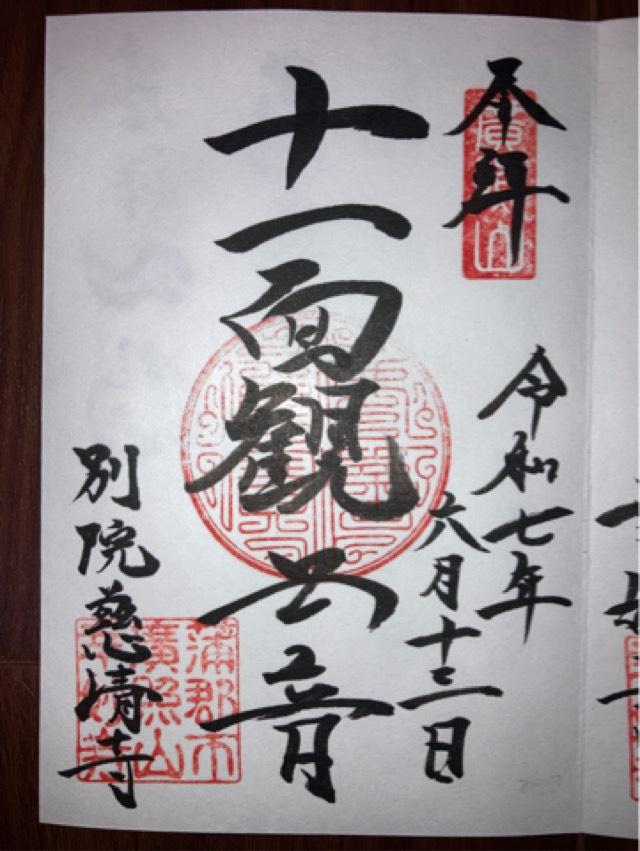 奉拝
廣照山
令和七年
六月十三日
十一面観世音
別院慈情寺
蒲郡市
廣照山